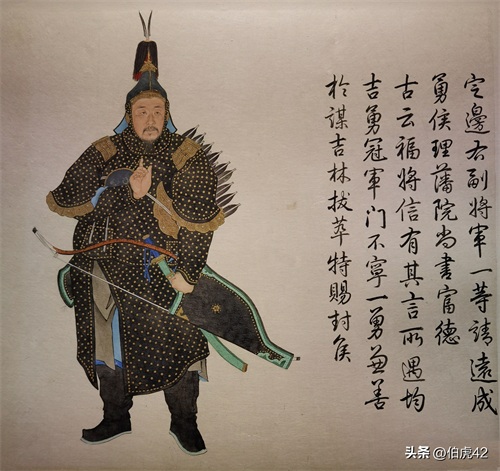 定邊右副將軍一等靖遠成
勇侯理藩院尚書富德
古云福將信有其言所遇均
吉勇冠軍門不寧一勇兼善
於謀吉林拔萃特賜封侯
头条 @伯虎42